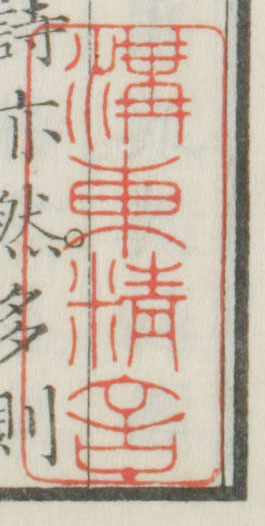 溝東精舍
詩亦然。多則